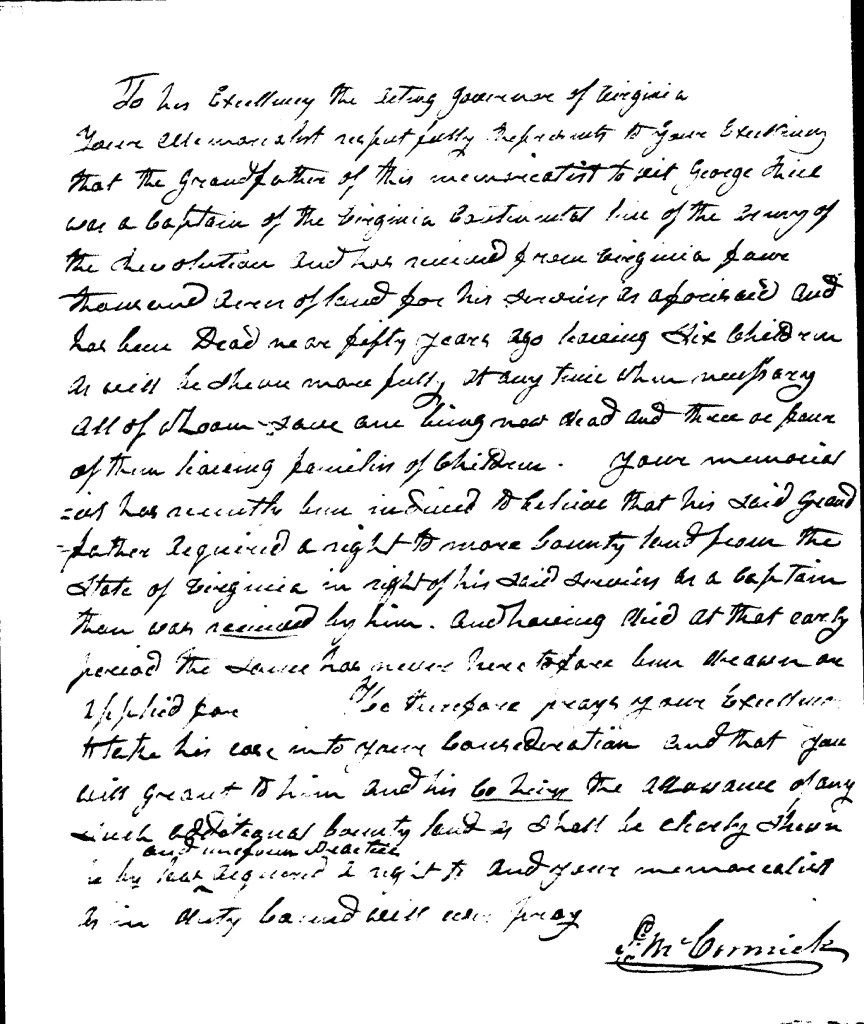 To his Excellency the acting governor of Virginia
Your Memorialist respectfully Represents to your Excellency
that the Grandfather of this memorialist to wit George
was a Captain of the Virginia Continental line of the army of
the Revolution and has received from Virginia four
thousand acres of land for his services as aforesaid and
has been Dead near fifty years ago leaving Six Children
as will be shewn more fully at any time when necessary
all of whoom save one being now dead and three or four
of them leaving families of Children. Your memorial
=ist has recently been induced to believe that his said Grand
=father acquired a right to more bounty land from the
State of Virginia in right of his said services as a Captain
than was received by him. And having died at that early
period the same has never heretofore been drawn or
applied for He therefore prays your Excellency
to take his case into your Consideration and that you
will grant to him and his Co heirs the allowance of any
such additional bounty land as shall be clearly shewn
and uniform practice
he by law acquired a right to and your memorialist
as in duty bound will ever pray
P. McCormick